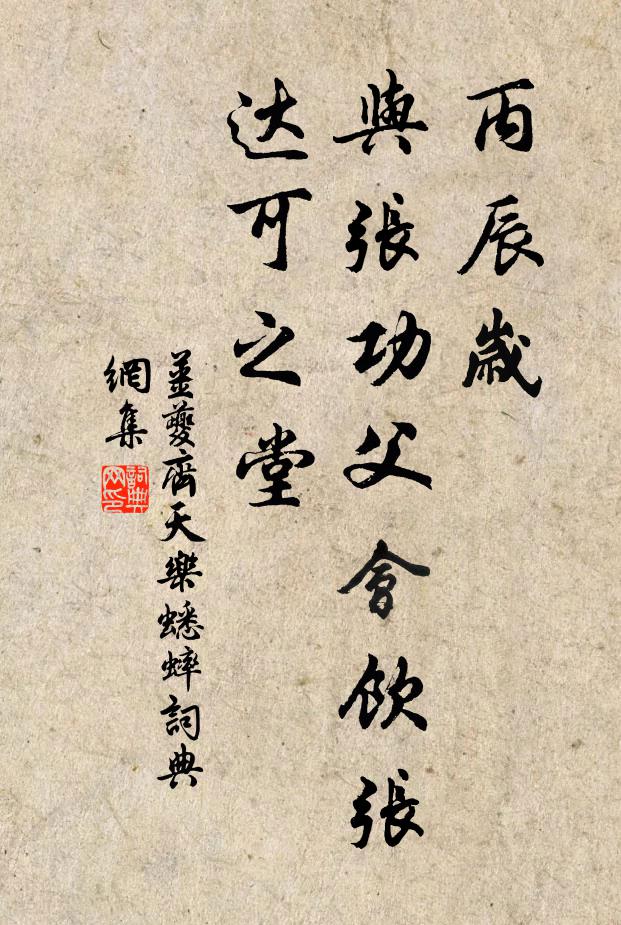 丙辰歲
與張功父會飲張
达可之堂
姜夔齊天樂蟋蟀詞典
網集
詞典網印